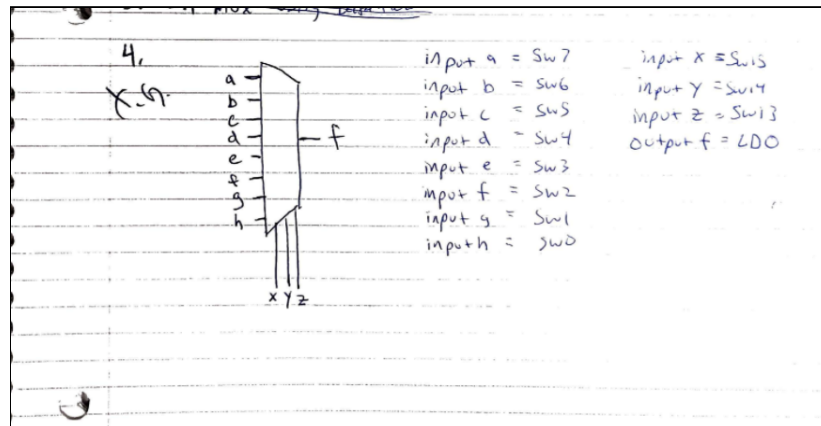 4.
a
b
c
d
e
f
g
h
f
x y z
input a = SW7
input b = SW6
input c = SW5
input d = SW4
input e = SW3
input f = SW2
input g = SW1
input h = SW0
input x = SW15
input y = SW14
input z = SW13
output f = LD0